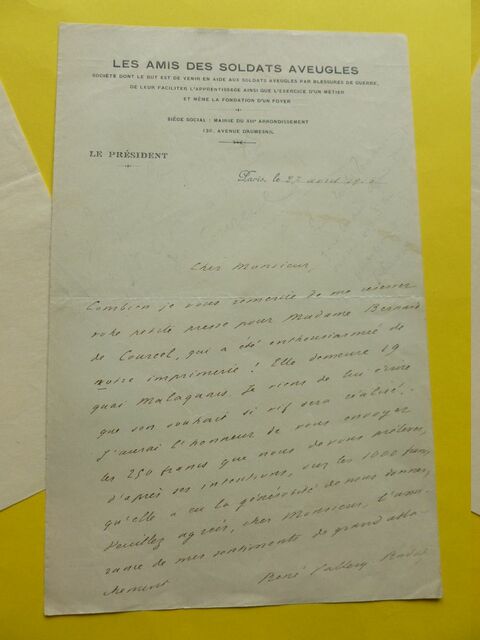 LES AMIS DES SOLDATS AVEUGLES
SOCIÉTÉ DONT LE BUT EST DE VENIR EN AIDE AUX SOLDATS AVEUGLES PAR BLESSURES DE GUERRE,
DE LEUR FACILITER L'APPRENTISSAGE AINSI QUE L'EXERCICE D'UN MÉTIER
ET MÊME LA FONDATION D'UN FOYER
SIÈGE SOCIAL : MAIRIE DU XIIe ARRONDISSEMENT
130, AVENUE DAUMESNIL
LE PRÉSIDENT
Paris, le 27 avril
Cher Monsieur,
Combien je vous remercie de me réserver
votre petite presse pour Madame Bernard
de Courcel, qui a été enthousiasmée de
votre imprimerie ! Elle demeure 19
quai Malaquais. Je viens de lui écrire
que son souhait si vif sera réalisé.
J'aurai l'honneur de vous envoyer
les 250 francs que nous devons prélever,
d'après ses intentions, sur les 1000 francs
qu'elle a eu la générosité de nous donner.
Veuillez agréer, cher Monsieur, l'assu-
rance de mes sentiments de grand atta-
chement
René Vallery Radot